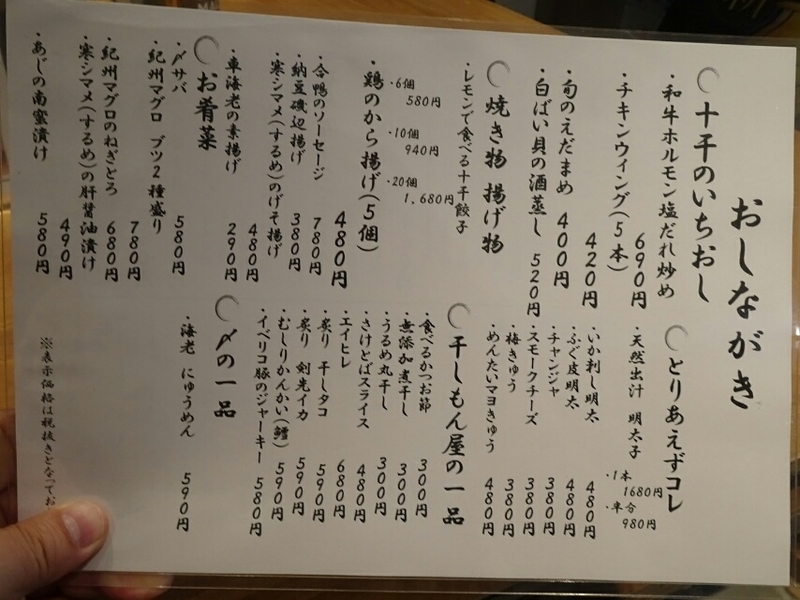 おしながき
十干のいちおし
・和牛ホルモン塩だれ炒め
690円
・チキンウィング(5本)
420円
・旬のえだまめ 400円
・白ばい貝の酒蒸し 520円
焼き物 揚げ物
・レモンで食べる十干餃子
・6個
580円
・10個
940円
・20個
1,680円
・鶏のから揚げ(5個)
480円
・合鴨のソーセージ 780円
・納豆磯辺揚げ 380円
・寒シマメ(するめ)のげそ揚げ
480円
・車海老の素揚げ 290円
お肴菜
・〆サバ 580円
・紀州マグロ ブツ2種盛り
780円
・紀州マグロのねぎとろ 680円
・寒シマメ(するめ)の肝醤油漬け
490円
・あじの南蛮漬け 580円
とりあえずコレ
・天然出汁 明太子
・1本
1680円
・半分
980円
・いか刺し明太 480円
・ふぐ皮明太 480円
・チャンジャ 380円
・スモークチーズ 380円
・梅きゅう 380円
・めんたいマヨきゅう 480円
干しもん屋の一品
・食べるかつお節 300円
・無添加煮干し 300円
・うるめ丸干し 300円
・さけとばスライス 480円
・エイヒレ 680円
・炙り 干しタコ 590円
・炙り 剣先イカ 590円
・むしりかんかい(鱈) 590円
・イベリコ豚のジャーキー 580円
〆の一品
・海老 にゅうめん 590円
※表示価格は税抜きとなってお